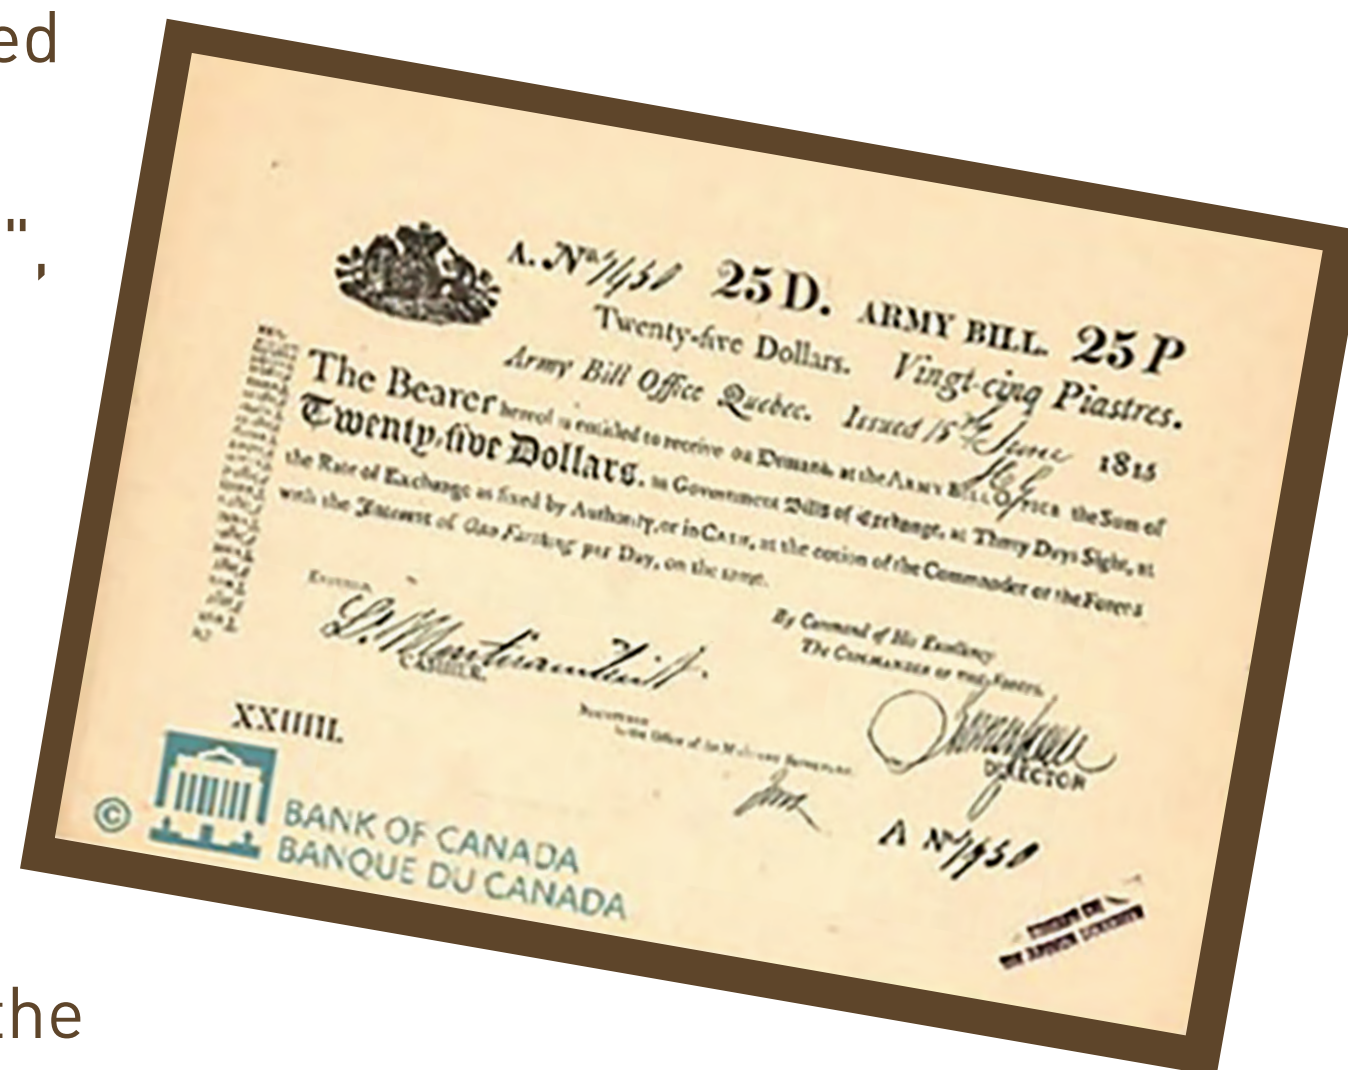 ed
",
A. No. 1450 25 D. ARMY BILL. 25 P
Twenty-five Dollars. Vingt-cinq Piastres.
Army Bill Office Quebec. Issued 15th June 1815
The Bearer hereof is entitled to receive on Demand, at the ARMY BILL OFFICE the Sum of
Twenty-five Dollars. in Government Bills of Exchange, at Thirty Days Sight, at
the Rate of Exchange as fixed by Authority, or in CASH, at the option of the Commander of the Forces
with the Interest of One Farthing per Day, on the same.
By Command of His Excellency
The COMMANDER OF THE FORCES.
CASHIER.
DIRECTOR
XXIIIII.
A No
© BANK OF CANADA
BANQUE DU CANADA
the